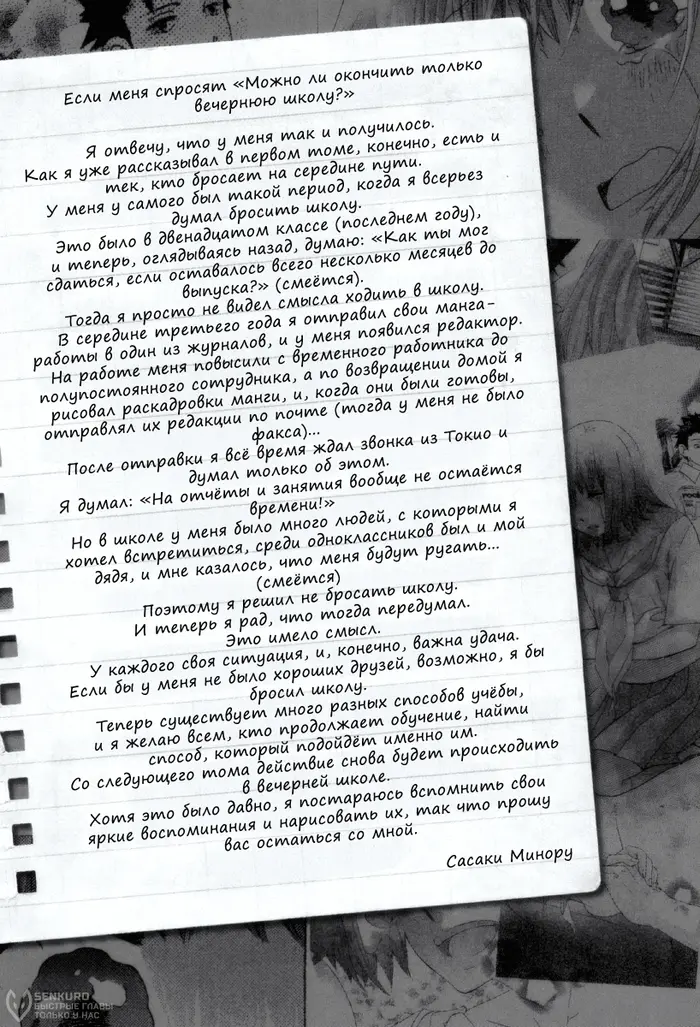 Если меня спросят «Можно ли окончить только
вечернюю школу?»
Я отвечу, что у меня так и получилось.
Как я уже рассказывал в первом томе, конечно, есть и
тек, кто бросает на середине пути.
У меня у самого был такой период, когда я всерьез
думал бросить школу.
Это было в двенадцатом классе (последнем году),
и теперь, оглядываясь назад, думаю: «Как ты мог
сдаться, если оставалось всего несколько месяцев до
выпуска?» (смеётся).
Тогда я просто не видел смысла ходить в школу.
В середине третьего года я отправил свои манга-
работы в один из журналов, и у меня появился редактор.
На работе меня повысили с временного работника до
полупостоянного сотрудника, а по возвращении домой я
рисовал раскадровки манги, и, когда они были готовы,
отправлял их редакции по почте (тогда у меня не было
факса)...
После отправки я всё время ждал звонка из Токио и
думал только об этом.
Я думал: «На отчёты и занятия вообще не остаётся
времени!»
Но в школе у меня было много людей, с которыми я
хотел встретиться, среди одноклассников был и мой
дядя, и мне казалось, что меня будут ругать...
(смеётся)
Поэтому я решил не бросать школу.
И теперь я рад, что тогда передумал.
Это имело смысл.
У каждого своя ситуация, и, конечно, важна удача.
Если бы у меня не было хороших друзей, возможно, я бы
бросил школу.
Теперь существует много разных способов учёбы,
и я желаю всем, кто продолжает обучение, найти
способ, который подойдёт именно им.
Со следующего тома действие снова будет происходить
в вечерней школе.
Хотя это было давно, я постараюсь вспомнить свои
яркие воспоминания и нарисовать их, так что прошу
вас остаться со мной.
Сасаки Минору
SENKURO
БЫСТРЫЕ ГЛАВЫ
ТОЛЬКО У НАС